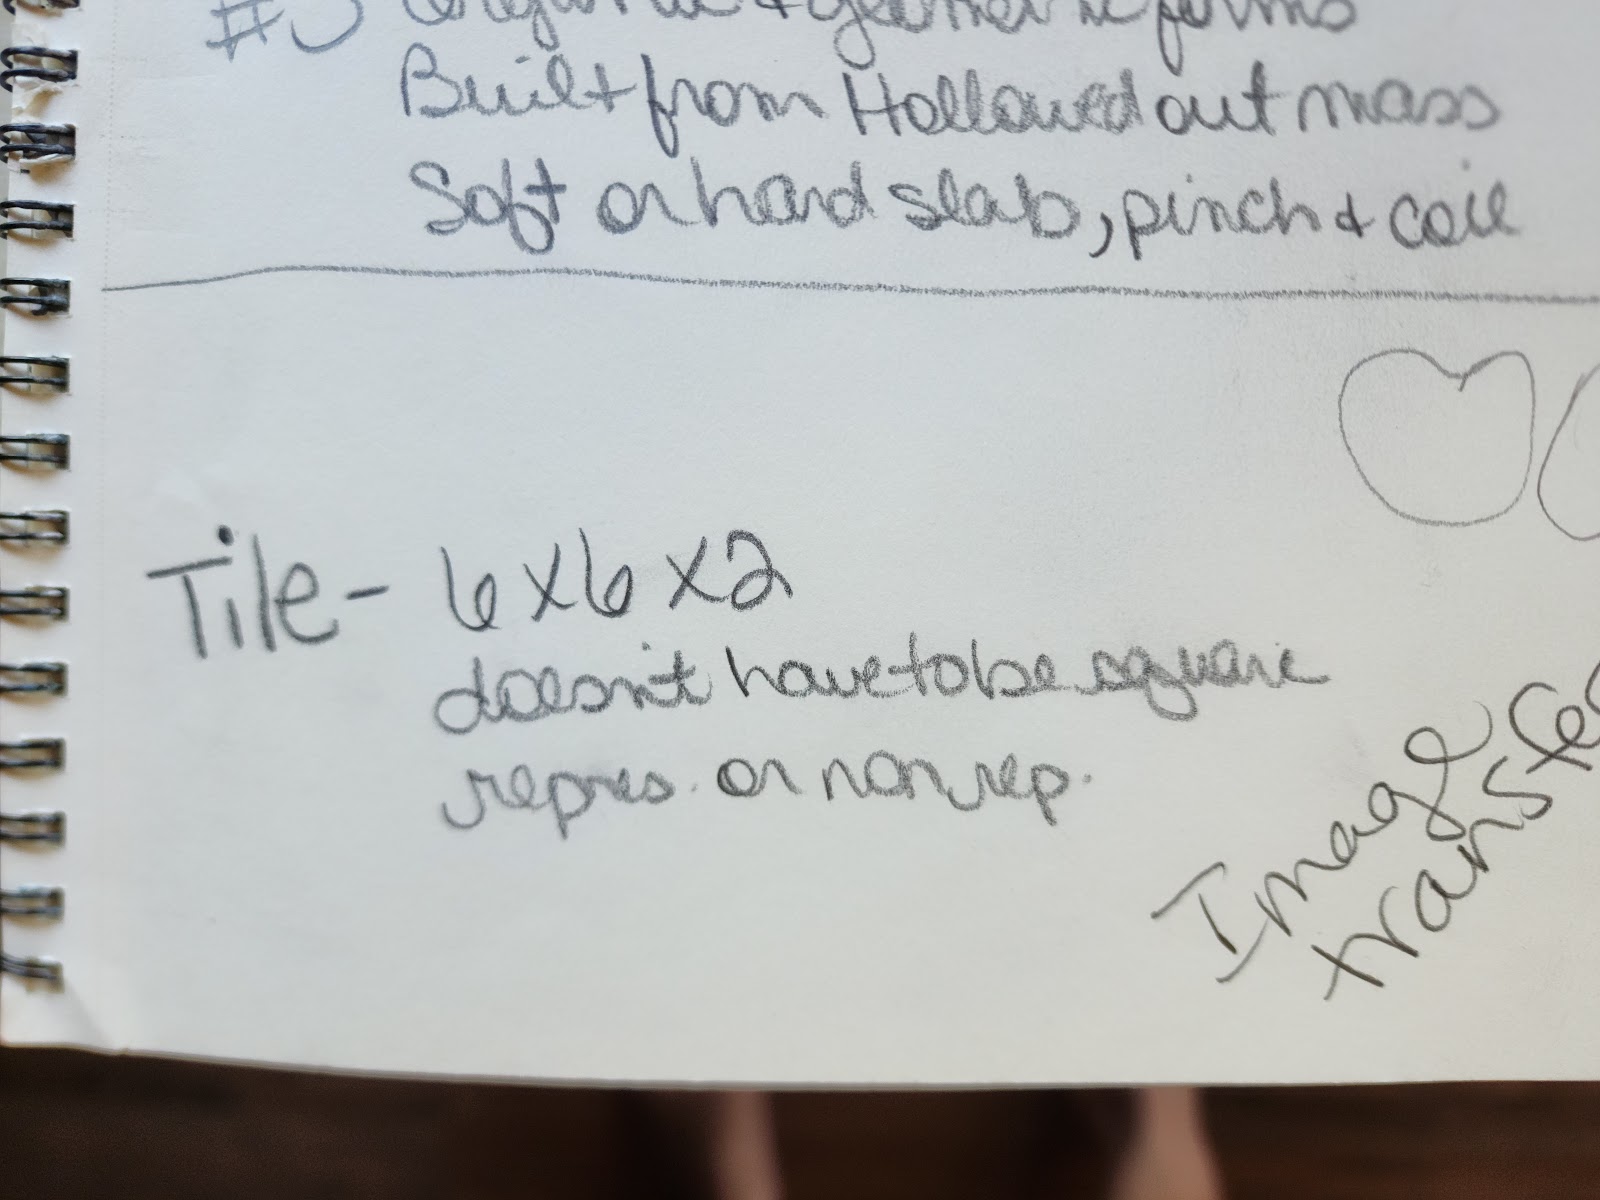 #3 Organic & geometric forms
Built from Hollowed out mass
Soft or hard slab, pinch & coil
Tile - 6 x 6 x 2
doesn't have to be square
repres. or non rep.
Image
transfer